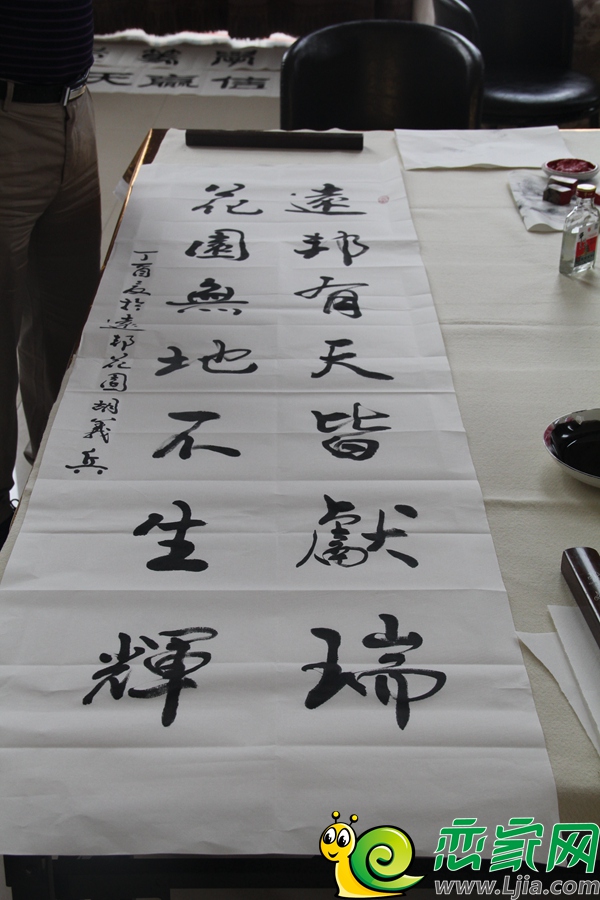 遠邦有天皆獻瑞
花園無地不生輝
丁酉夏於遠邦花園胡義兵
天赢信
恋家网
www.Ljia.com